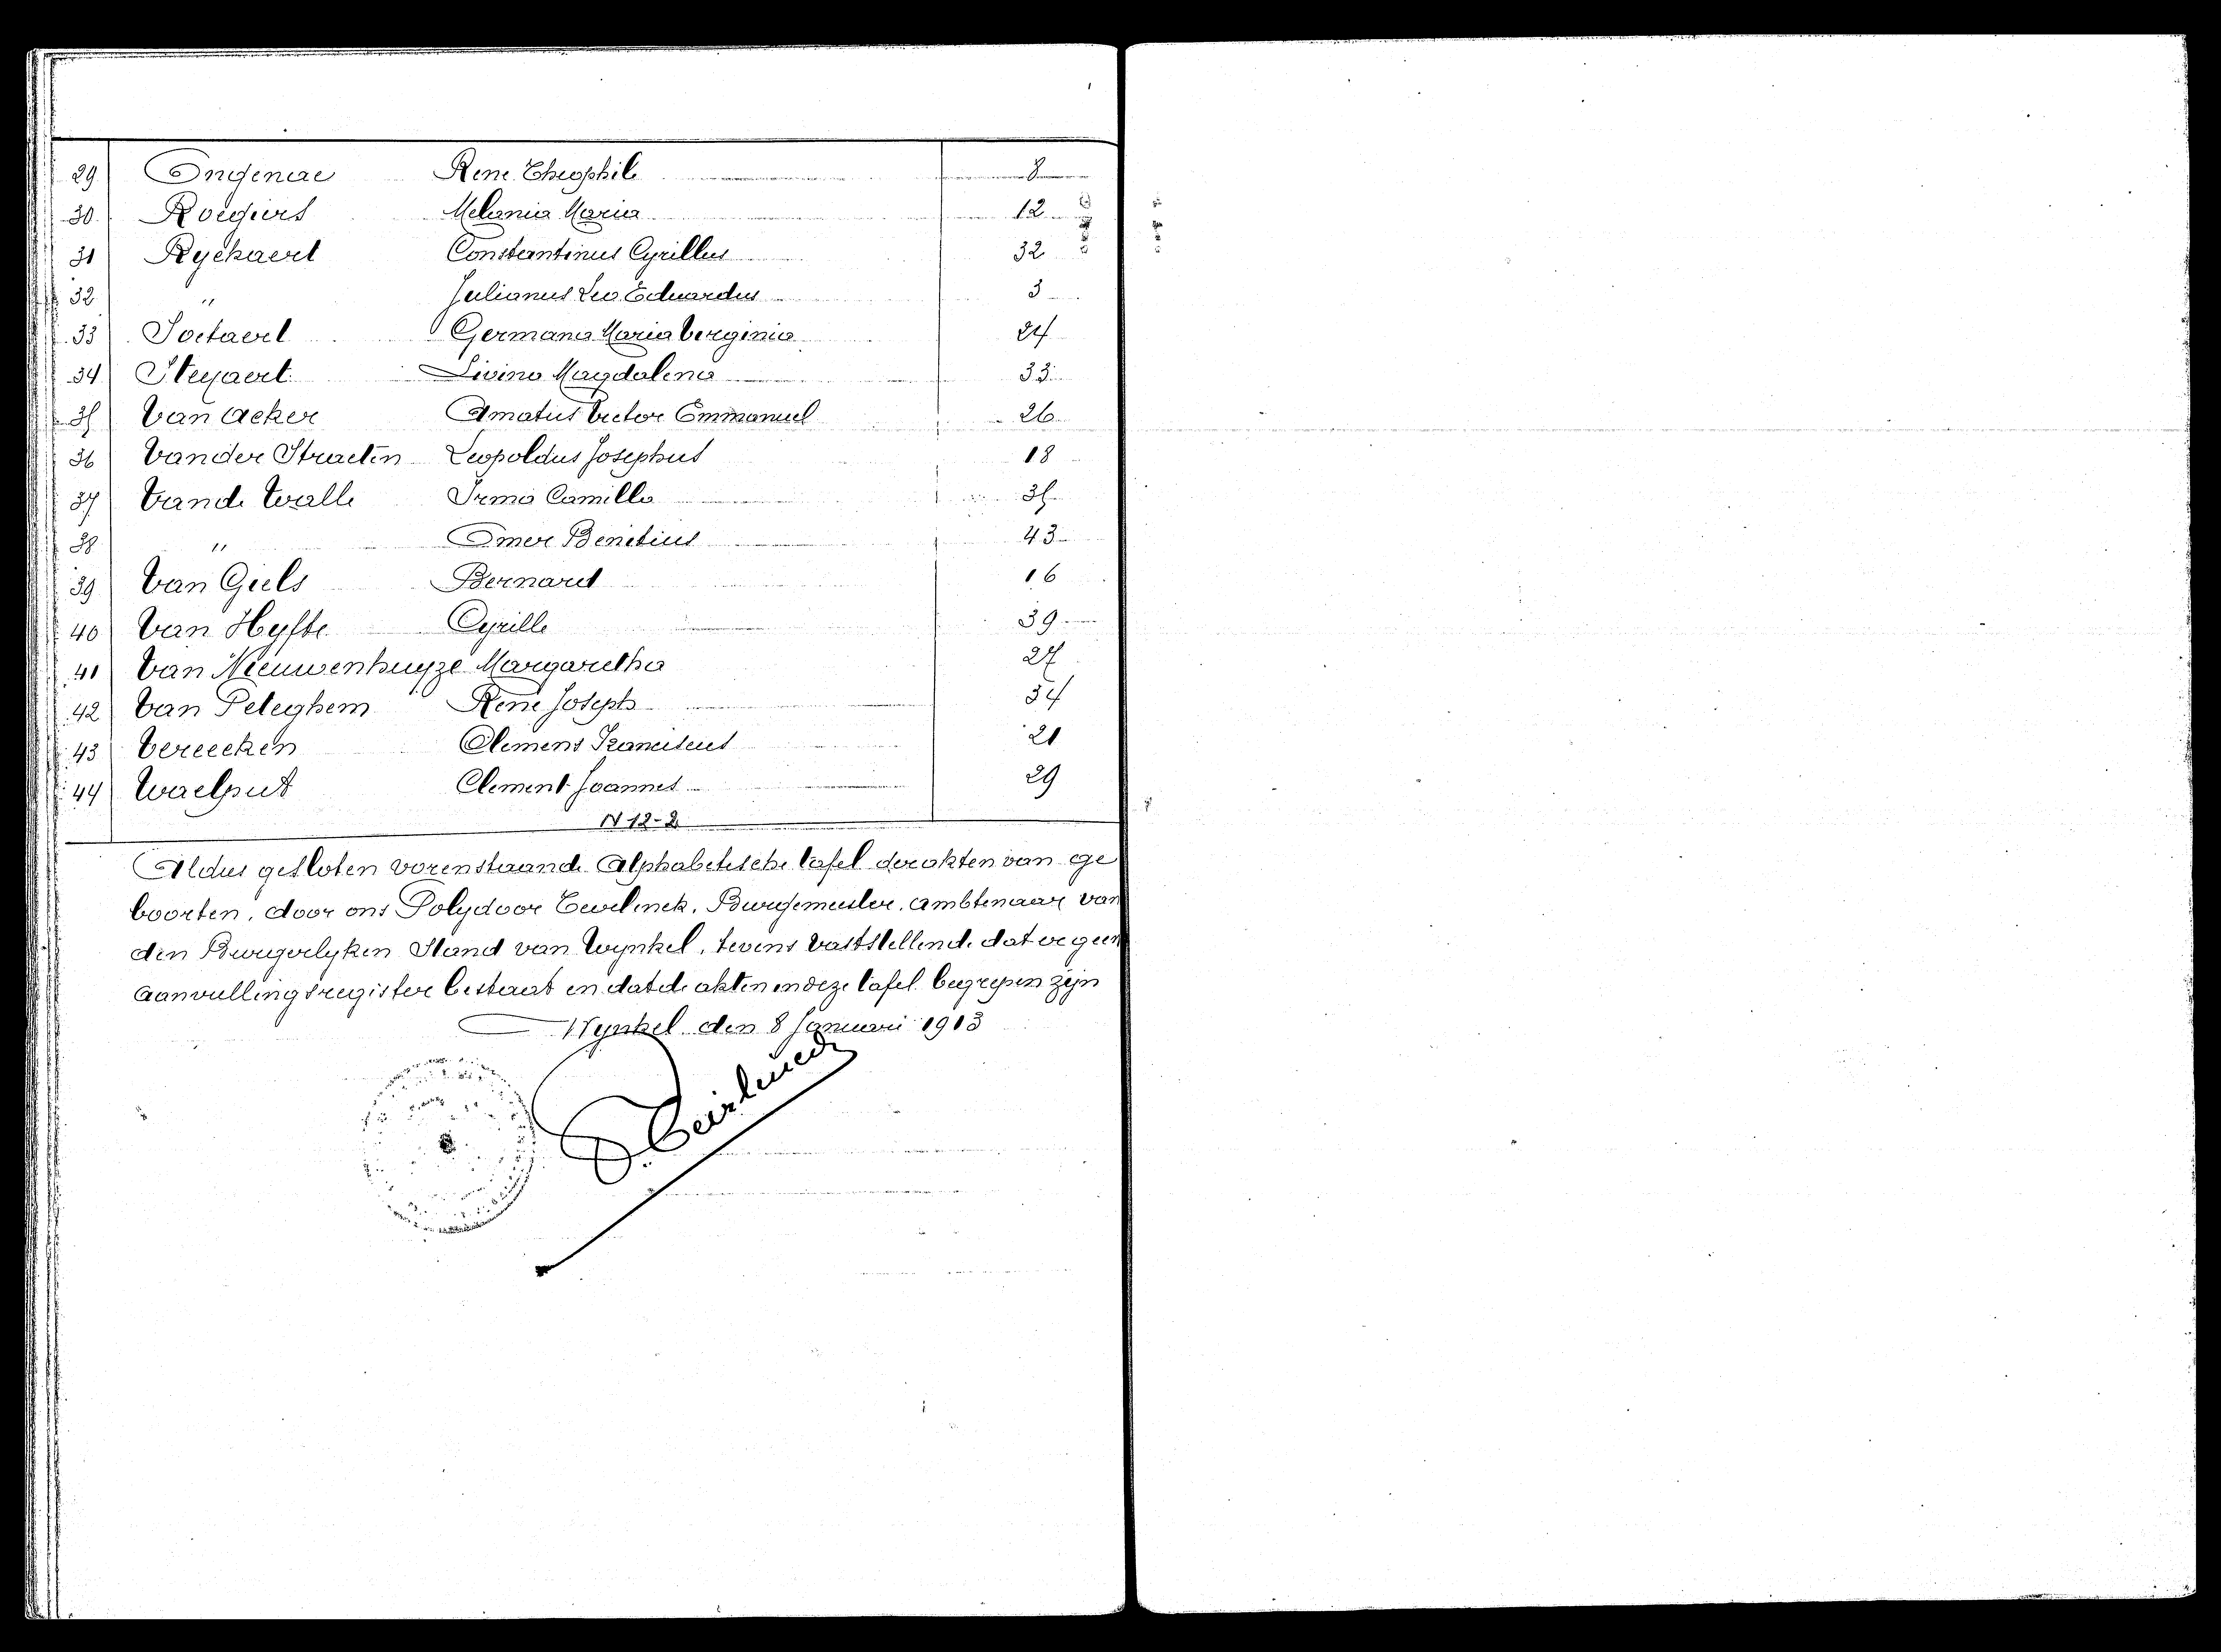 29 Ongenae Rene Theophile 8
30 Roegiers Melania Maria 12
31 Ryckaert Constantinus Cyrillus 32
32 " Julianus Leo Eduardus 3
33 Soetaert Germana Maria Verginia 24
34 Steyaert Livina Magdalena 33
35 Van Acker Amatus Victor Emmanuel 26
36 Vander Straeten Leopoldus Josephus 18
37 Vande Walle Irma Camilla 35
38 " Omer Benetius 43
39 Van Giels Bernard 16
40 Van Hyfte Cyrille 39
41 Van Nieuwenhuyze Margaretha 27
42 Van Peteghem René Joseph 34
43 Vereecken Clemens Franciscus 21
44 Waelput Clement Joannes 29
N 12-2
Aldus gesloten vorenstaande Alphabetische tafel der akten van ge
boorten, door ons Polydoor Teirlinck, Burgemeester, ambtenaar van
den Burgerlyken Stand van Wynkel, tevens vaststellende dat er geen
aanvullingsregister bestaat en dat de akten in deze tafel begrepen zijn
Wynkel den 8 Januari 1913
P. Teirlinck